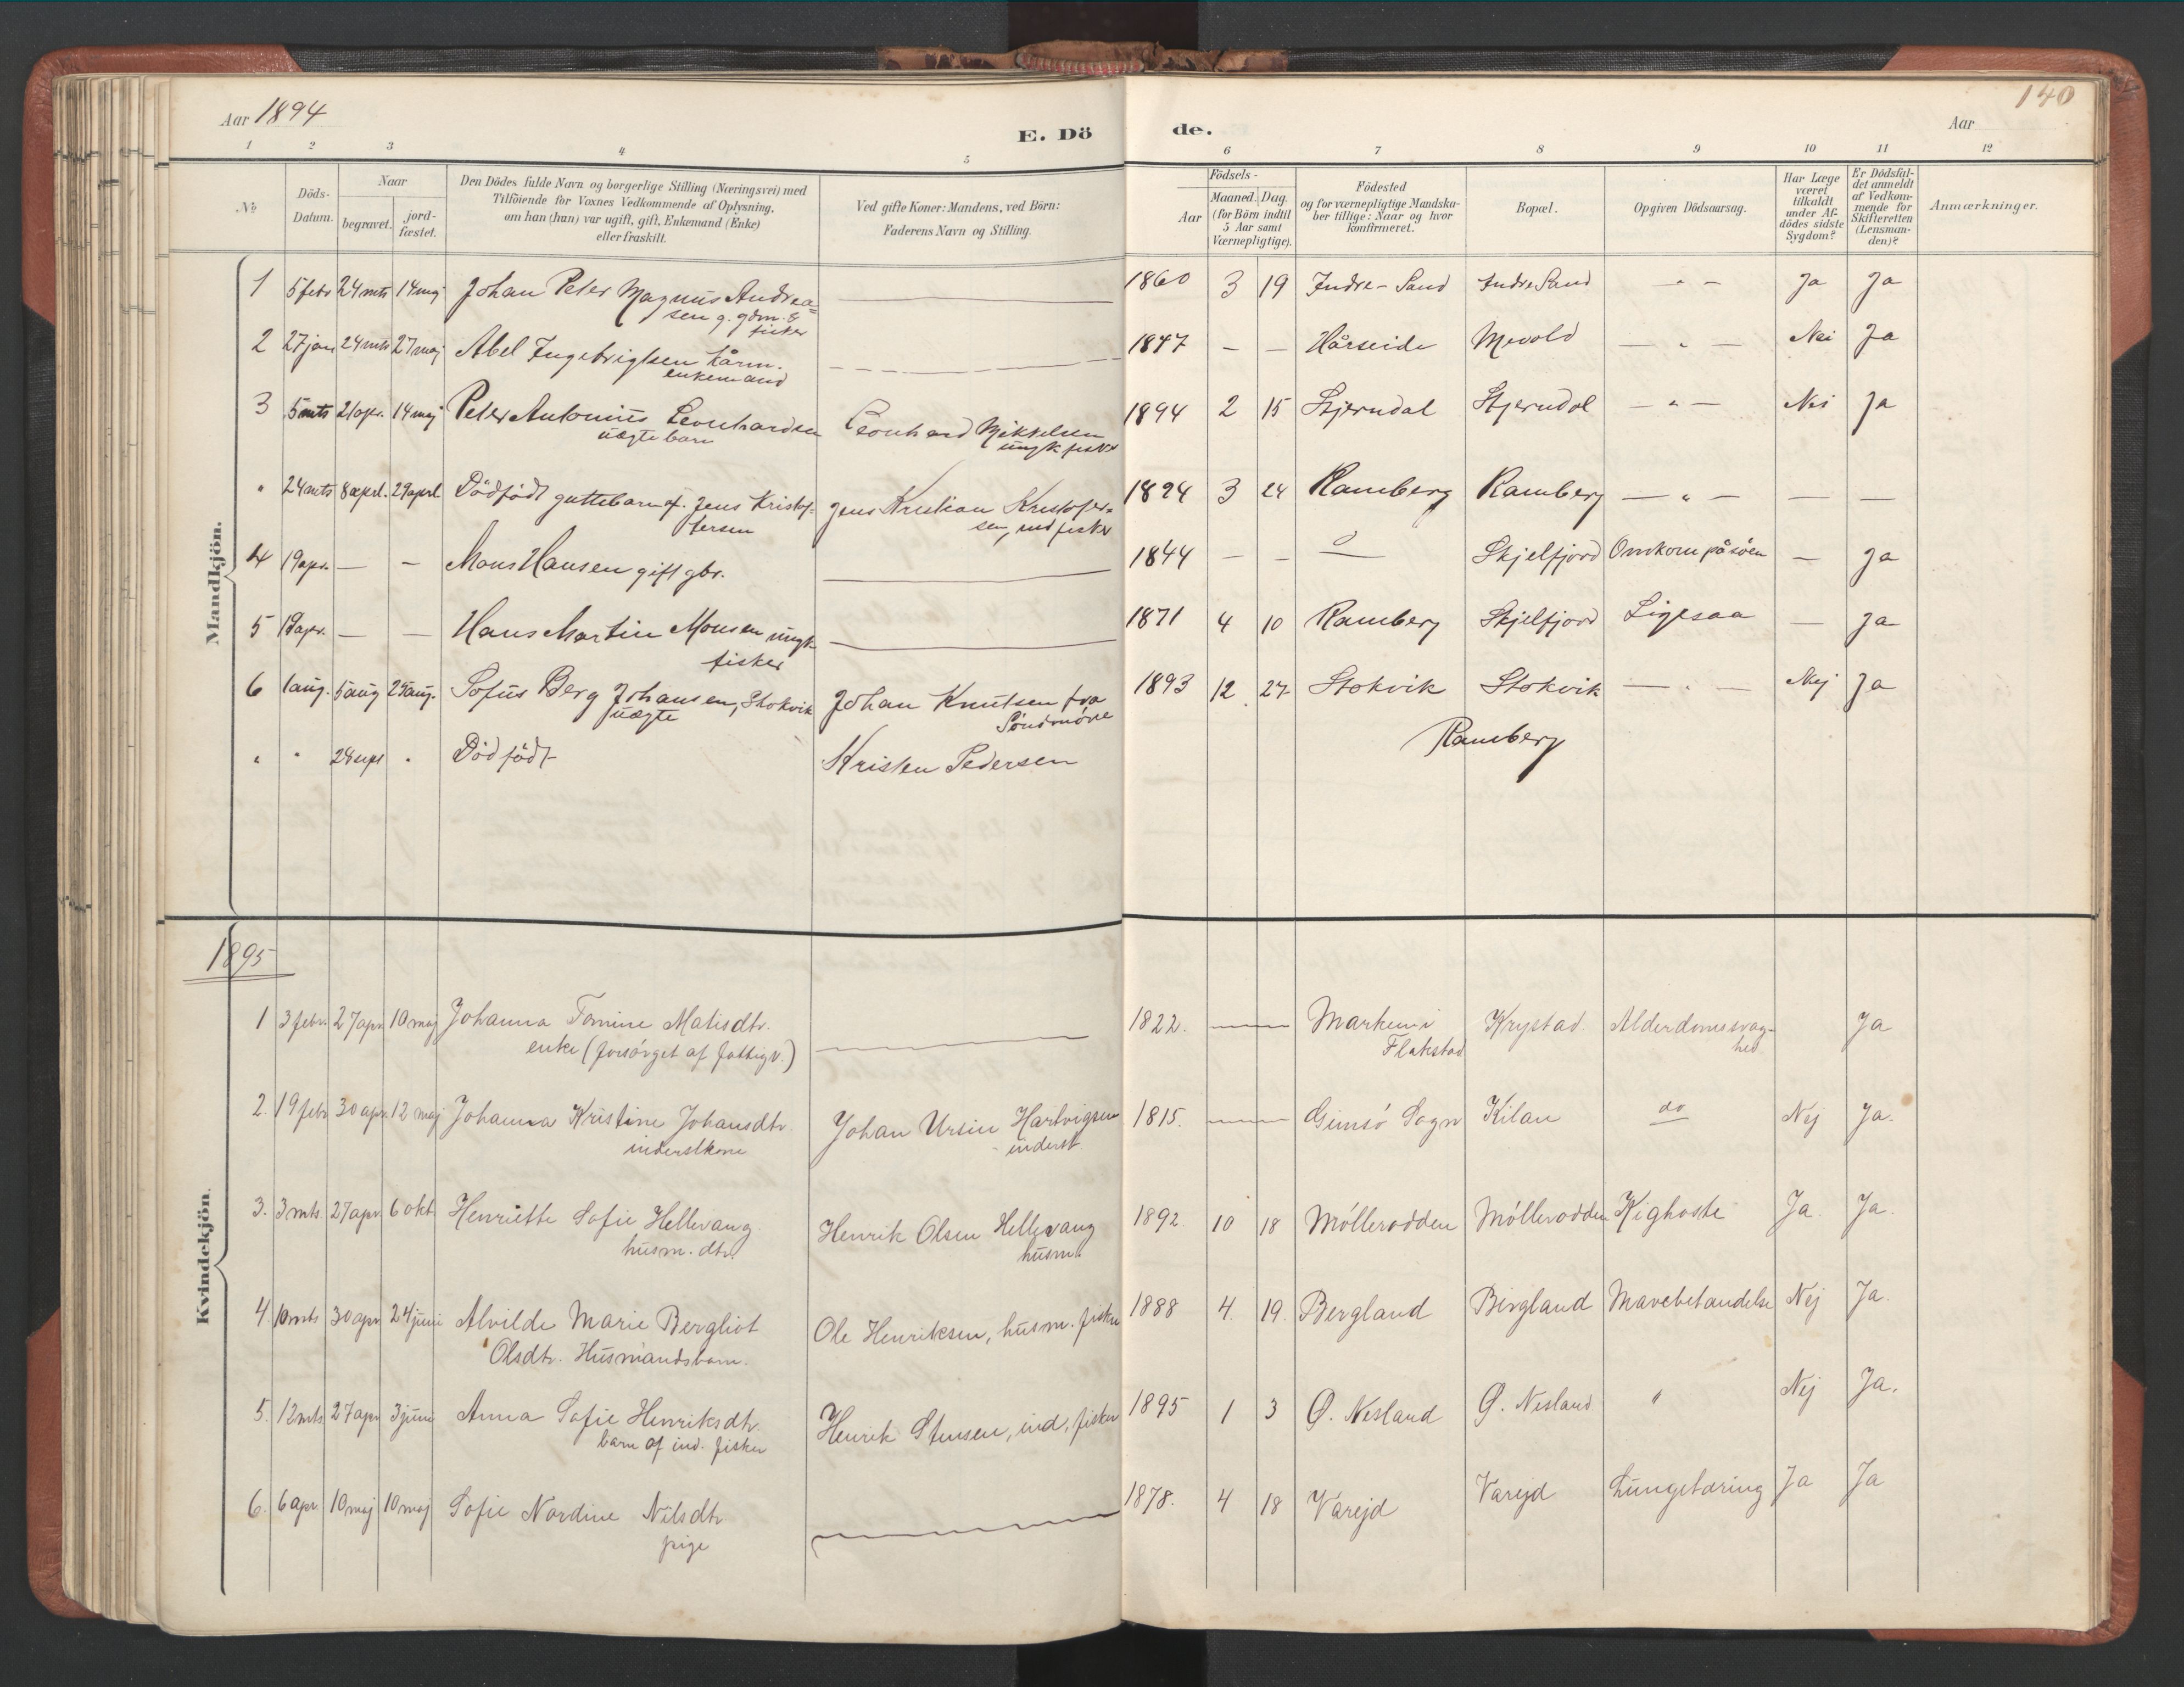 Aar 1894
E. Dö de.
Aar
140
1 2 3 4 5 6 7 8 9 10 11 12
№
Döds-Datum.
Naar
begravet.
jord-fæstet.
Den Dödes fulde Navn og borgerlige Stilling (Næringsvei) med
Tilföiende for Voxnes Vedkommende af Oplysning,
om han (hun) var ugift, gift, Enkemand (Enke)
eller fraskilt.
Ved gifte Koner: Mandens, ved Börn:
Faderens Navn og Stilling.
Födsels-
Aar
Maaned. Dag.
(for Börn indtil
5 Aar samt
Værnepligtige).
Födested
og for værnepligtige Mandska-
ber tillige: Naar og hvor
konfirmeret.
Bopæl.
Opgiven Dödsaarsag.
Har Læge
været
tilkaldt
under Af-
dödes sidste
Sygdom?
Er Dödsfal-
det anmeldt
af Vedkom-
mende for
Skifteretten
(Lensman-
den)?
Anmærkninger.
Mandkjön.
1 5 febr 24 mts 14 maj Johan Peter Magnus Andrea= — 1860 3 19 Indre-Sand Indre Sand - " - Ja Ja
sen g. gdm. &
fisker
2 27 jan 24 mts 27 maj Abel Ingebrigtsen kårm. — 1847 — — Hårseide Mevold — " — Nei Ja
enkemand
3 5 mts 21 apr. 14 maj Peter Antonius Leonhardsen Leonhard Mikkelsen 1894 2 15 Stjerndal Stjerndal — " — Nei Ja
uægte barn ungk fisker
" 24 mts 8 aprl. 29 aprl Dödfödt guttebarn af Jens Kristof= Jens Kristian Kristofer= 1894 3 24 Ramberg Ramberg — " — — —
fersen sen, ind fisker
4 19 apr. — — Mons Hansen gift gbr. — 1844 — — o Skjelfjord Omkom på söen — Ja
5 19 apr. — — Hans Martin Monsen ungk — 1871 4 10 Ramberg Skjelfjord Ligesaa — Ja
fisker
6 1 aug. 5 aug 25 aug. Sofus Berg Johansen, Stokvik Johan Knutsen fra 1893 12 27 Stokvik Stokvik — " — Nej Ja
uægte Söndmöre
" " 24 " Dödfödt Kristen Pedersen Ramberg
1895
Kvindekjön.
1 3 febr. 27 apr. 10 maj Johanna Tomine Matisdtr. — 1822. — Marken i Krystad Alderdomssvag- Ja
enke (forsörget af fattigv.) Flakstad hed
2. 19 febr 30 apr. 12 maj Johanna Kristine Johansdtr. Johan Ursin Hartvigsen 1815. — Gimsö Sogn Kilan do Nej Ja.
inderstkone inderst
3. 3 mts. 27 apr. 6 okt Henriette Sofie Hellevang Henrik Olsen Hellevang 1892. 10 18 Möllerodden Möllerodden Kighoste Ja. Ja.
husm. dtr. husm.
4. 10 mts 30 apr 24 juni Alvilde Marie Bergliot Ole Henriksen, husm. fisker 1888 4. 19. Bergland Bergland Mavebetændelse Nej Ja.
Olsdtr. Husmandsbarn.
5. 12 mts 27 apr 3 juni Anna Sofie Henriksdtr. Henrik Stensen, ind, fisker 1895 1 3 Ø. Nesland Ø. Nesland " Nej Ja.
barn af ind. fisker
6. 6 apr. 10 maj 10 maj Sofie Nordine Nilsdtr. — 1878. 4 18 Varejd Varejd Lungetæring Ja Ja
pige